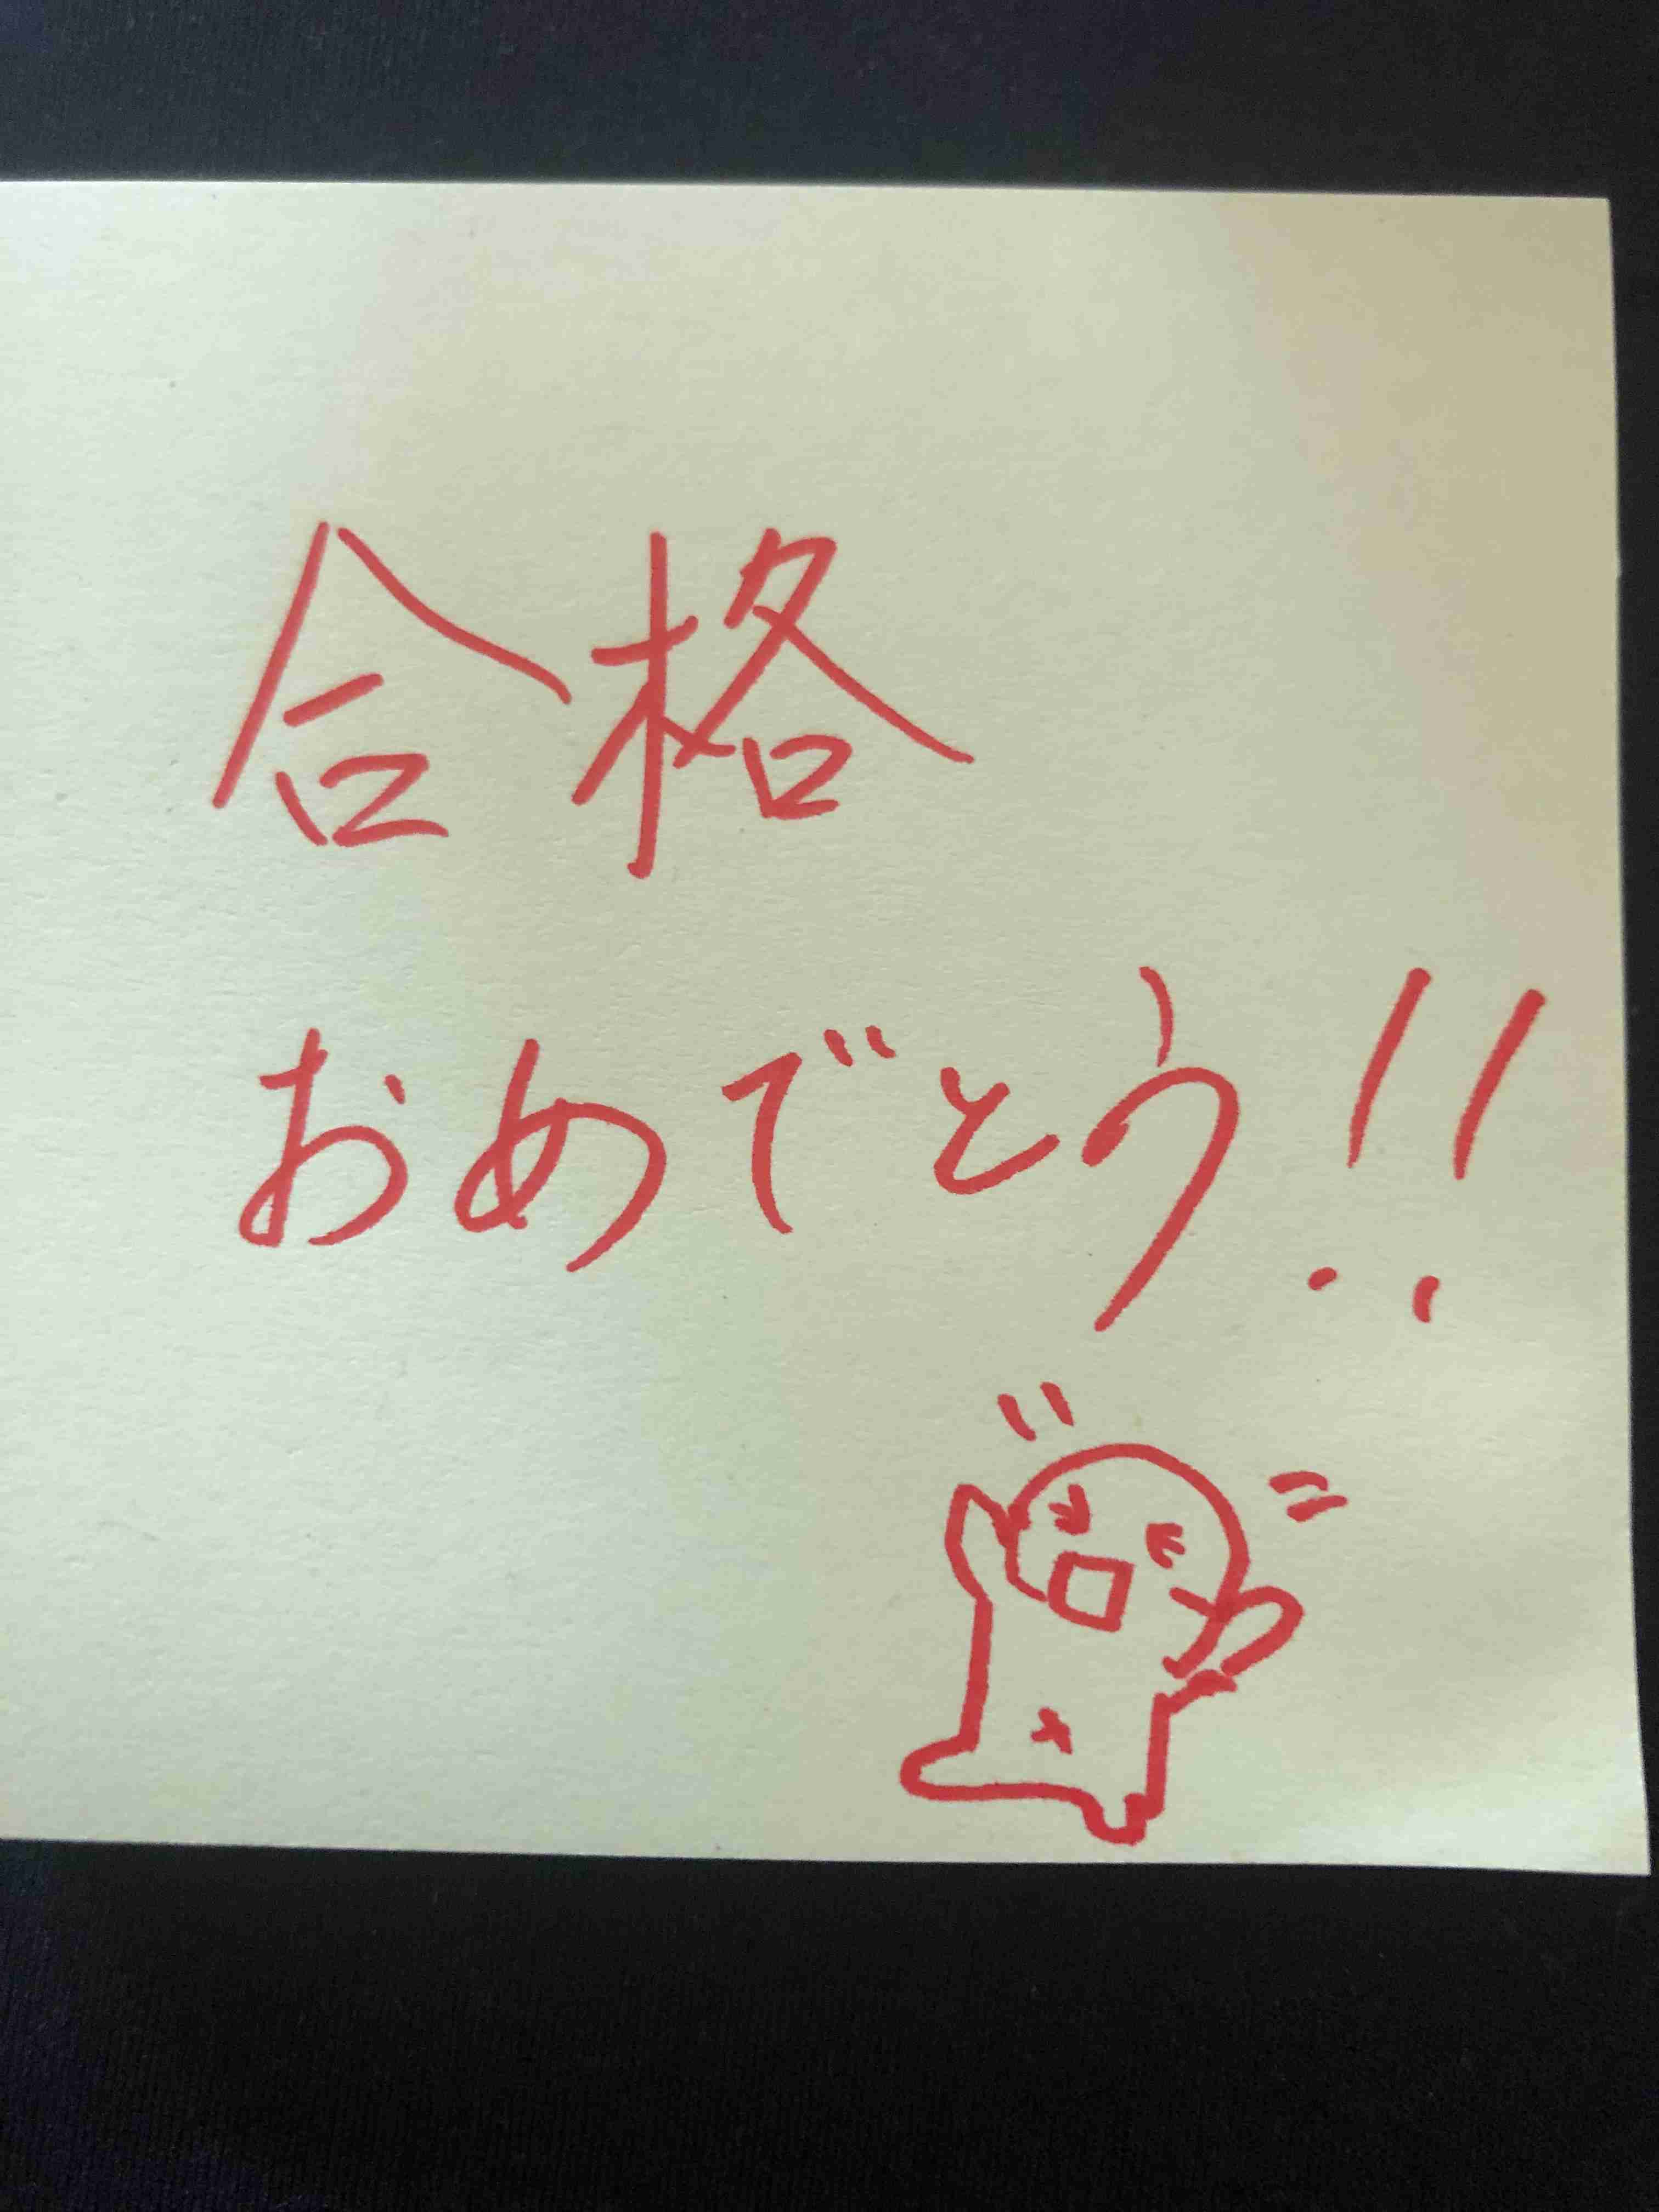 合格
おめでとう!!